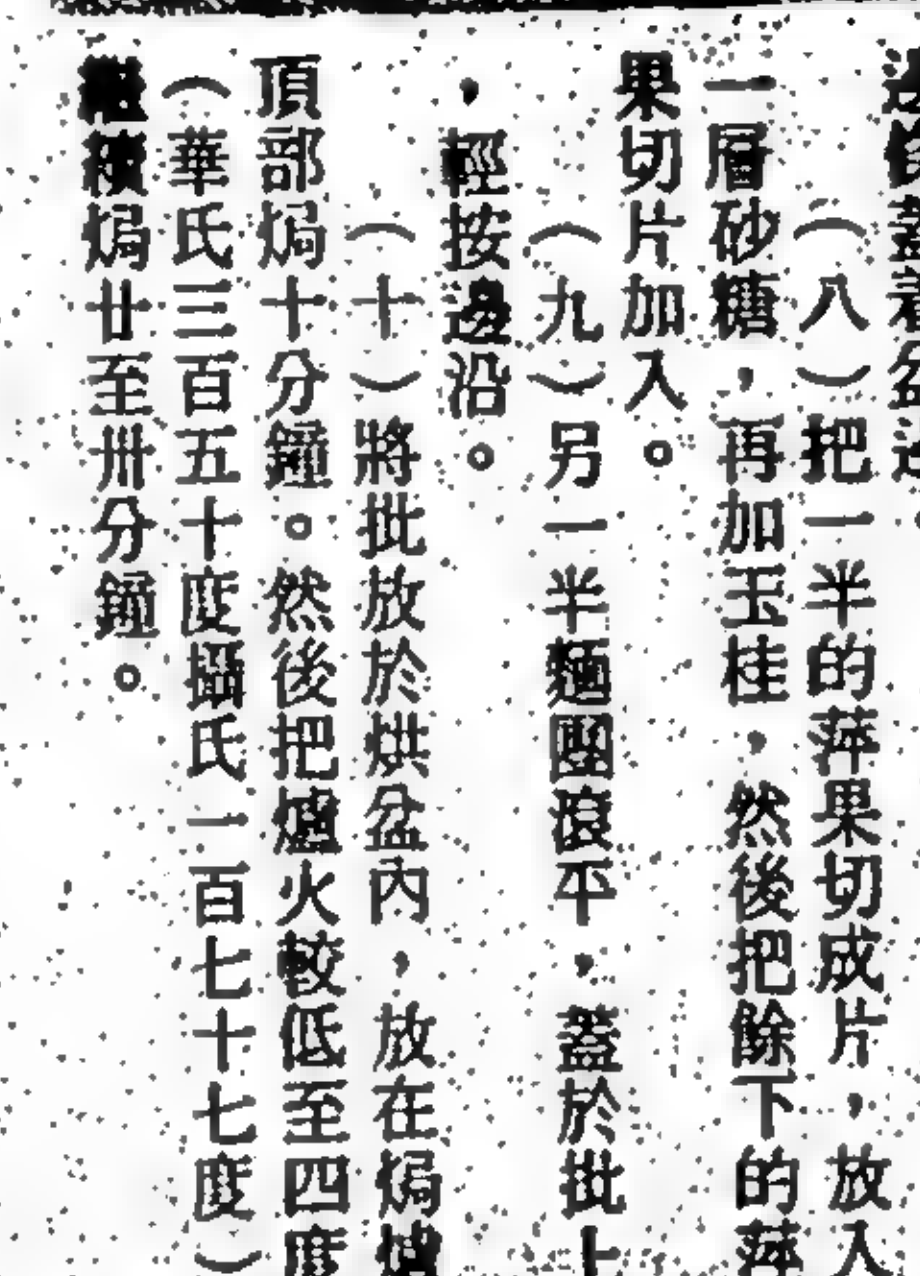 邊後蓋着盆邊
（八）把一半的萍果切成片，放入
一層砂糖，再加玉桂，然後把餘下的萍
果切片加入。
（九）另一半麵團滾平，蓋於批上
，輕按邊沿。
（十）將批放於烘盆內，放在焗爐
頂部焗十分鐘。然後把爐火較低至四度
（華氏三百五十度攝氏一百七十七度）
繼續焗廿至卅分鐘。